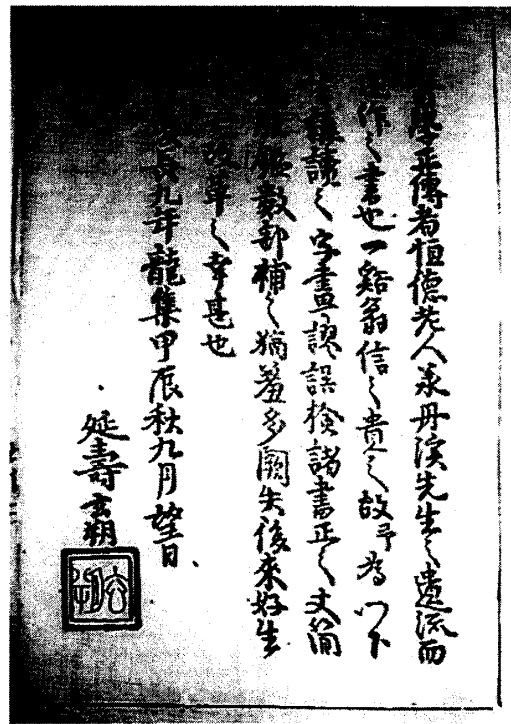 醫學正傳者恒德老人承丹溪先生之遺流而
作之書也一谿翁信之貴之故予為
讀之字畫謬誤檢諸書正之文簡
數部補之猶羞多闕失後来好生
改草之幸甚也
慶長九年龍集甲辰秋九月望日
延壽玄朔